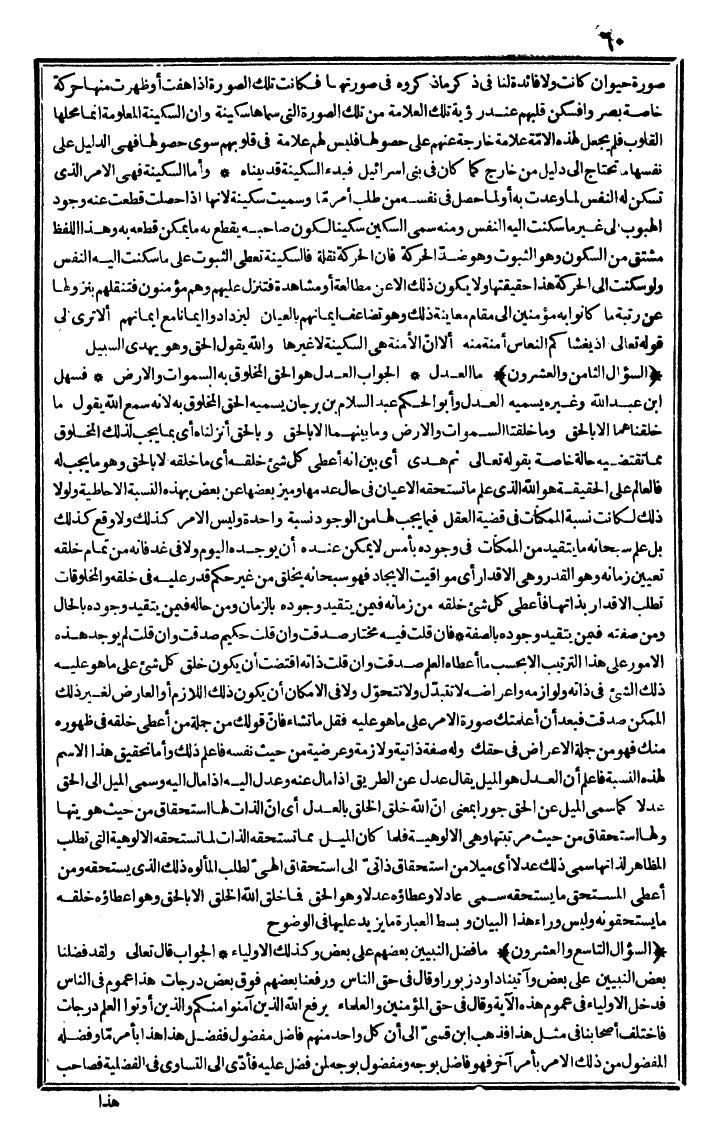 ٦٠
صورة حيوان كانت ولا فائدة لنا فى ذكر ماذكروه فى صورتها فكانت تلك الصورة اذا هفت أو ظهرت منها حركة
خاصة بصر وافسكن قلبهم عند رؤية تلك العلامة من تلك الصورة التى سماها سكينة وان السكينة المعلومة انما محلها
القلوب فلم يجعل لهذه الامّة علامة خارجة عنهم على حصولها فليس لهم علامة فى قلوبهم سوى حصولها فهى الدليل على
نفسها ما تحتاج الى دليل من خارج كما كان فى بنى اسرائيل فبدء السكينة قد بيناه * وأما السكينة فهى الامر الذى
تسكن له النفس لما وعدت به أو لما حصل فى نفسه من طلب أمر مّا وسميت سكينة لانها اذا حصلت قطعت عنه وجود
الهبوب الى غير ما سكنت اليه النفس ومنه سمى السكين سكينا لكون صاحبه يقطع به ما يمكن قطعه به وهذا اللفظ
مشتق من السكون وهو الثبوت وهو ضدّ الحركة فان الحركة نقلة فالسكينة تعطى الثبوت على ما سكنت اليه النفس
ولو سكنت الى الحركة هذا حقيقتها ولا يكون ذلك الا عن مطالعة أو مشاهدة فتنزل عليهم وهم مؤمنون فتنقلهم بنزولها
عن رتبة ما كانوا به مؤمنين الى مقام معاينة ذلك وهو تضاعف ايمانهم بالعيان ليزدادوا ايمانا مع ايمانهم ألا ترى لى
قوله تعالى اذ يغشاكم النعاس أمنة منه ألا انّ الأمنة هى السكينة لا غيرها والله يقول الحق وهو يهدى السبيل
﴿السؤال الثامن والعشرون﴾ ما العدل * الجواب العدل هو الحق المخلوق به السموات والارض * فسهل
ابن عبد الله وغيره يسميه العدل وأبو الحكم عبد السلام بن برجان يسميه الحق المخلوق به لانه سمع الله يقول ما
خلقناهما الا بالحق وما خلقنا السموات والارض وما بينهما الا بالحق وبالحق أنزلناه أى بما يجب لذلك المخلوق
مما تقتضيه حالة خاصة بقوله تعالى ثم هدى أى بين انه أعطى كل شئ خلقه أى ما خلقه الا بالحق وهو ما يجب له
فالعالم على الحقيقة هو الله الذى علم ما تستحقه الاعيان فى حال عدمها وميز بعضها عن بعض بهذه النسبة الاحاطية ولولا
ذلك لكانت نسبة الممكنات فى قضية العقل فيما يجب لها من الوجود نسبة واحدة وليس الامر كذلك ولا وقع كذلك
بل علم سبحانه ما يتقيد من الممكنات فى وجوده بأمس لا يمكن عنده أن يوجده اليوم ولا فى غد فانه من تمام خلقه
تعيين زمانه وهو القدر وهى الاقدار أى مواقيت الايجاد فهو سبحانه يخلق من غير حكم قدر عليه فى خلقه والمخلوقات
تطلب الاقدار بذاتها فأعطى كل شئ خلقه من زمانه فيمن يتقيد وجوده بالزمان ومن حاله فيمن يتقيد وجوده بالحال
ومن صفته فيمن يتقيد وجوده بالصفة * فان قلت فيه مختار صدقت وان قلت حكيم صدقت وان قلت لم يوجد هذه
الامور على هذا الترتيب الا بحسب ما أعطاه العلم صدقت وان قلت ذاته اقتضت أن يكون خلق كل شئ على ما هو عليه
ذلك الشئ فى ذاته ولوازمه واعراضه لا تتبدّل ولا تتحوّل ولا فى الامكان أن يكون ذلك اللازم أو العارض لغير ذلك
الممكن صدقت فبعد أن أعلمتك صورة الامر على ما هو عليه فقل ما تشاء فانّ قولك من جملة من أعطى خلقه فى ظهوره
منك فهو من جملة الاعراض فى حقك وله صفة ذاتية ولازمة وعرضية من حيث نفسه فاعلم ذلك وأما تحقيق هذا الاسم
لهذه النسبة فاعلم أن العدل هو الميل يقال عدل عن الطريق اذا مال عنه وعدل اليه اذا مال اليه وسمى الميل الى الحق
عدلا كما سمى الميل عن الحق جورا بمعنى انّ الله خلق الخلق بالعدل أى انّ الذات لها استحقاق من حيث هويتها
ولها استحقاق من حيث مرتبتها وهى الالوهية فلما كان الميل مما تستحقه الذات لما تستحقه الالوهية التى تطلب
المظاهر لذاتها سمى ذلك عدلا أى ميلا من استحقاق ذاتىّ الى استحقاق الهىّ لطلب المألوه ذلك الذى يستحقه ومن
أعطى المستحق ما يستحقه سمى عادلا وعطاؤه عدلا وهو الحق فما خلق الله الخلق الا بالحق وهو اعطاؤه خلقه
ما يستحقونه وليس وراء هذا البيان وبسط العبارة ما يزيد عليها فى الوضوح
﴿السؤال التاسع والعشرون﴾ ما فضل النبيين بعضهم على بعض وكذلك الاولياء * الجواب قال تعالى ولقد فضلنا
بعض النبيين على بعض وآتينا داود زبورا وقال فى حق الناس ورفعنا بعضهم فوق بعض درجات هذا عموم فى الناس
فدخل الاولياء فى عموم هذه الآية وقال فى حق المؤمنين والعلماء يرفع الله الذين آمنوا منكم والذين أوتوا العلم درجات
فاختلف أصحابنا فى مثل هذا فذهب ابن قسىّ الى أن كل واحد منهم فاضل مفضول ففضل هذا هذا بأمر مّا وفضله
المفضول من ذلك الامر بأمر آخر فهو فاضل بوجه ومفضول بوجه لمن فضل عليه فأدّى الى التساوى فى الفضلية فصاحب
هذا